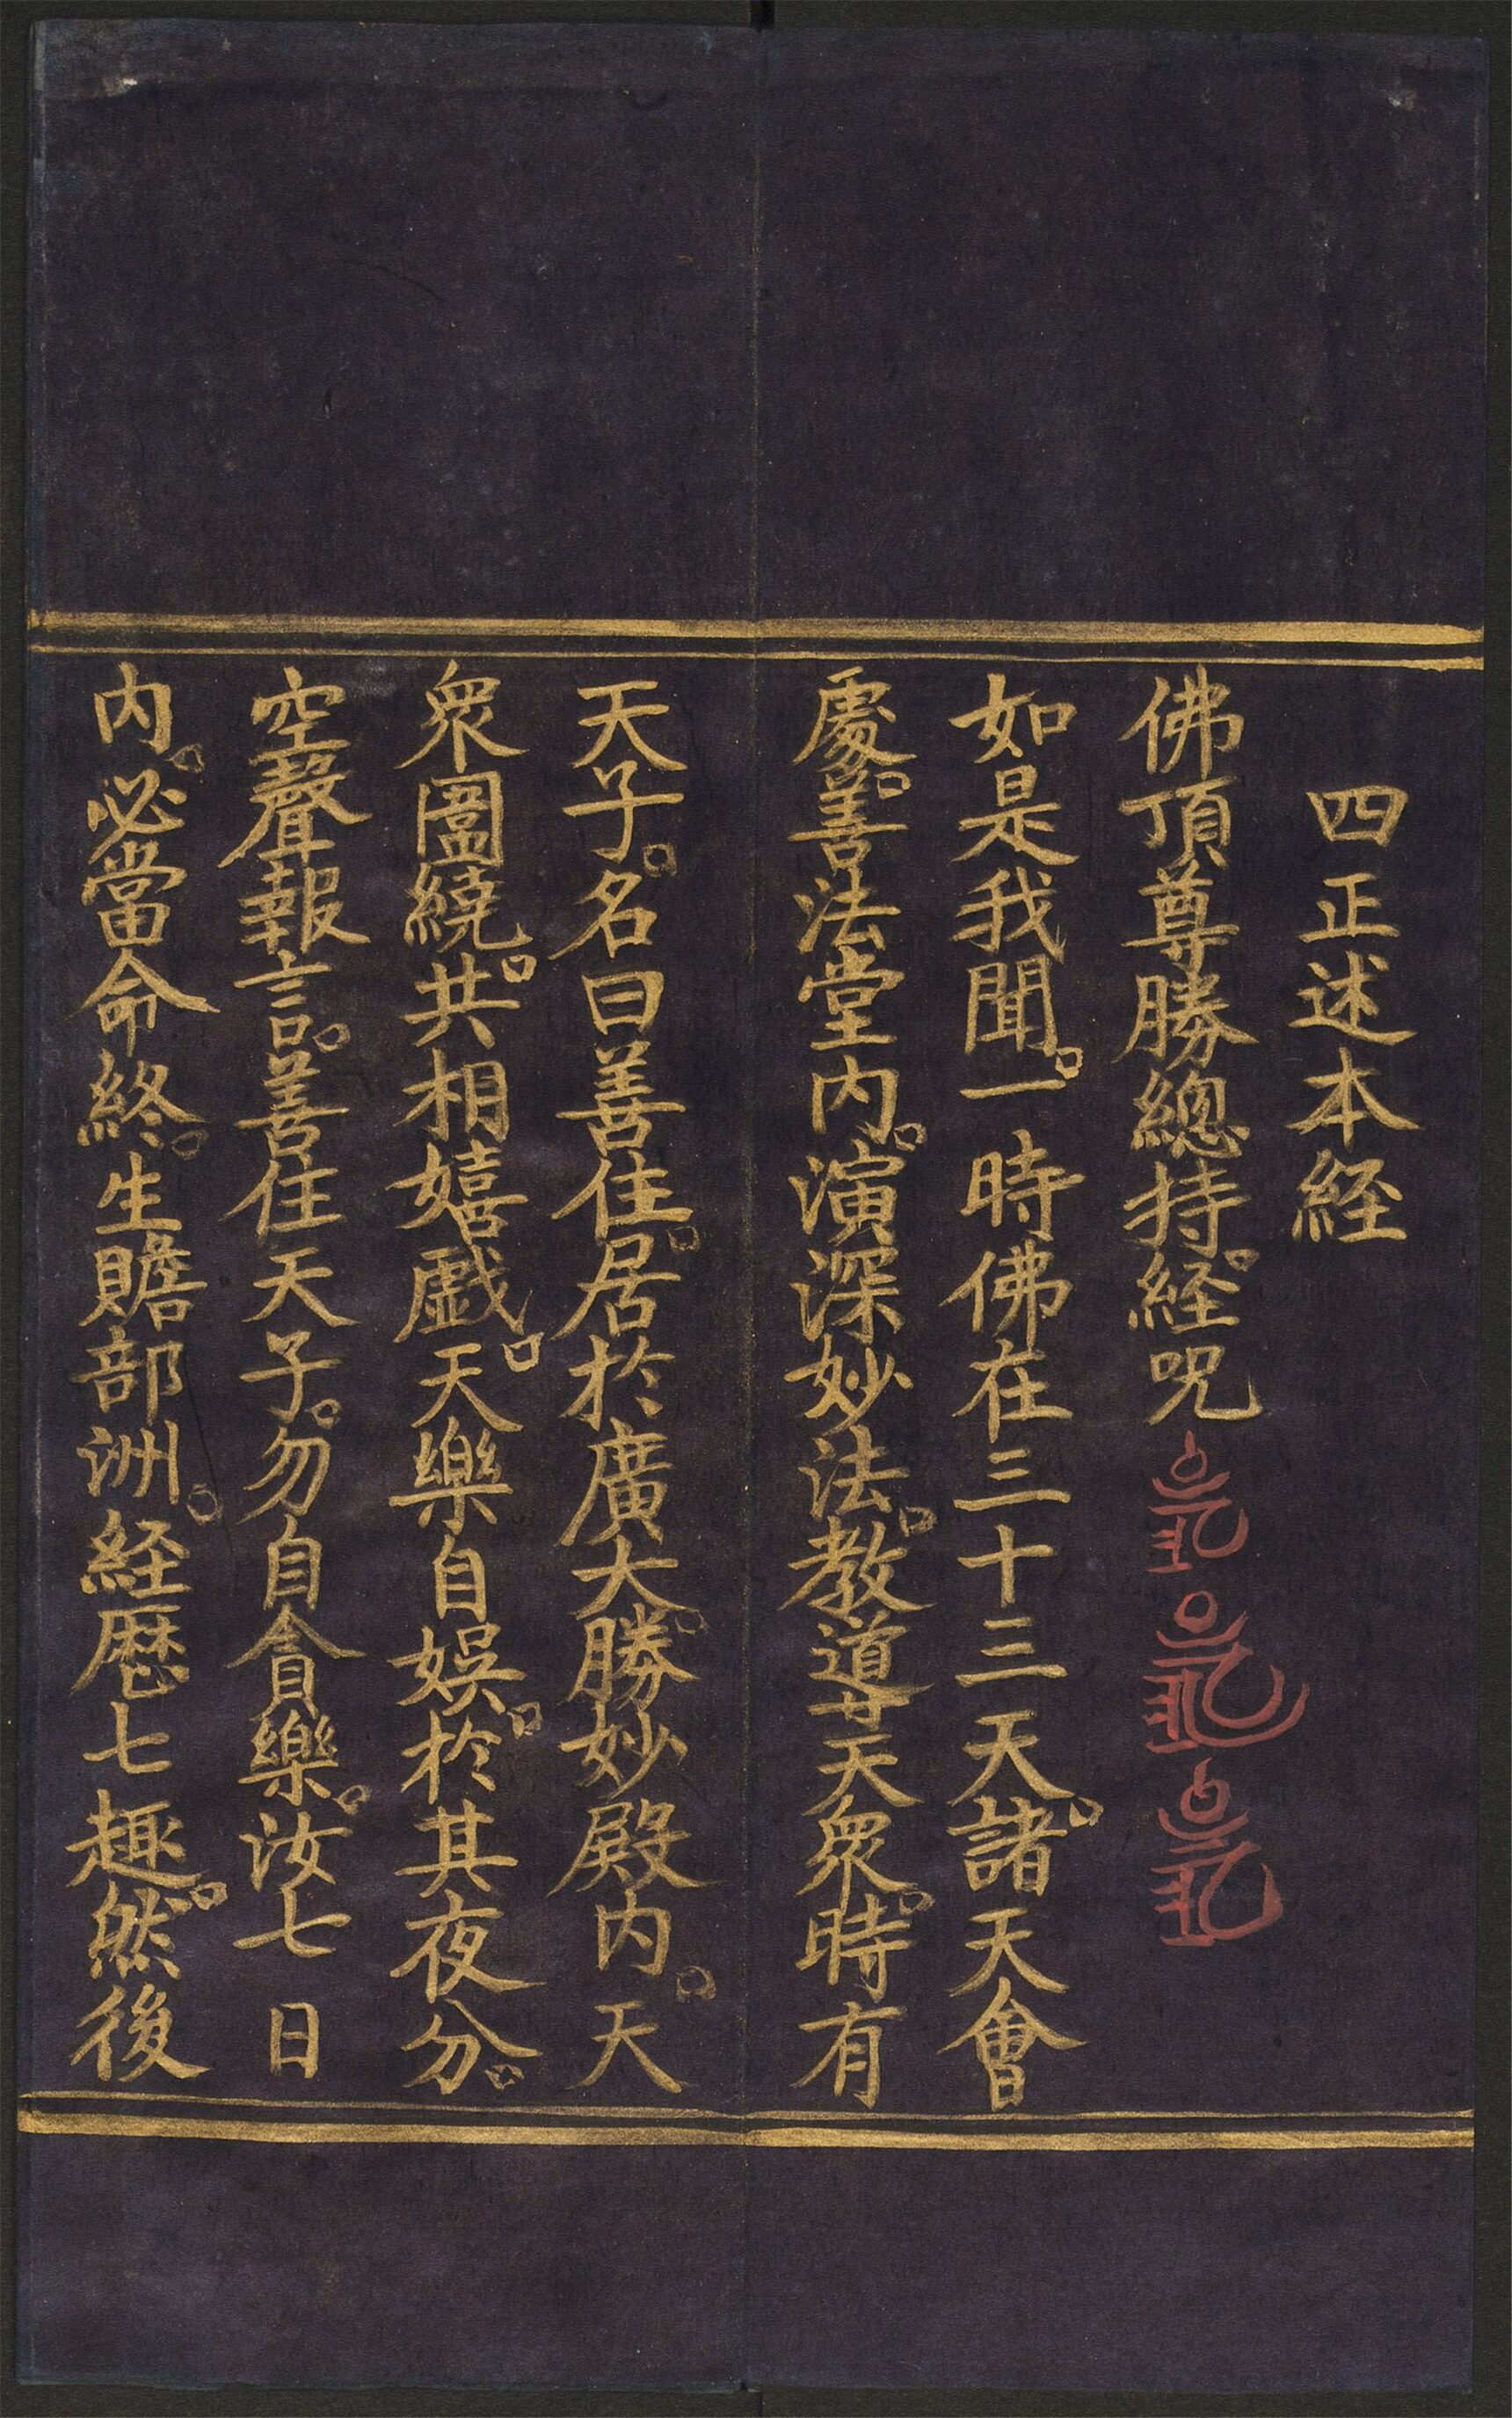 四正述本経
佛頂尊勝總持経呪
如是我聞。一時佛在三十三天。諸天會
處。善法堂内。演深妙法。教導天衆。時有
天子。名曰善住。居於廣大。勝妙殿内。天
衆圍繞。共相嬉戯。天樂自娯。於其夜分。
空聲報言。善住天子。勿自貪樂。汝七日
内。必當命終。生贍部洲。経歴七趣。然後